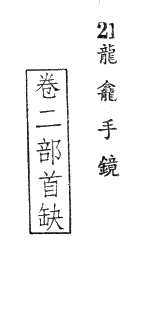 2]龍龕手鏡
卷二部首缺